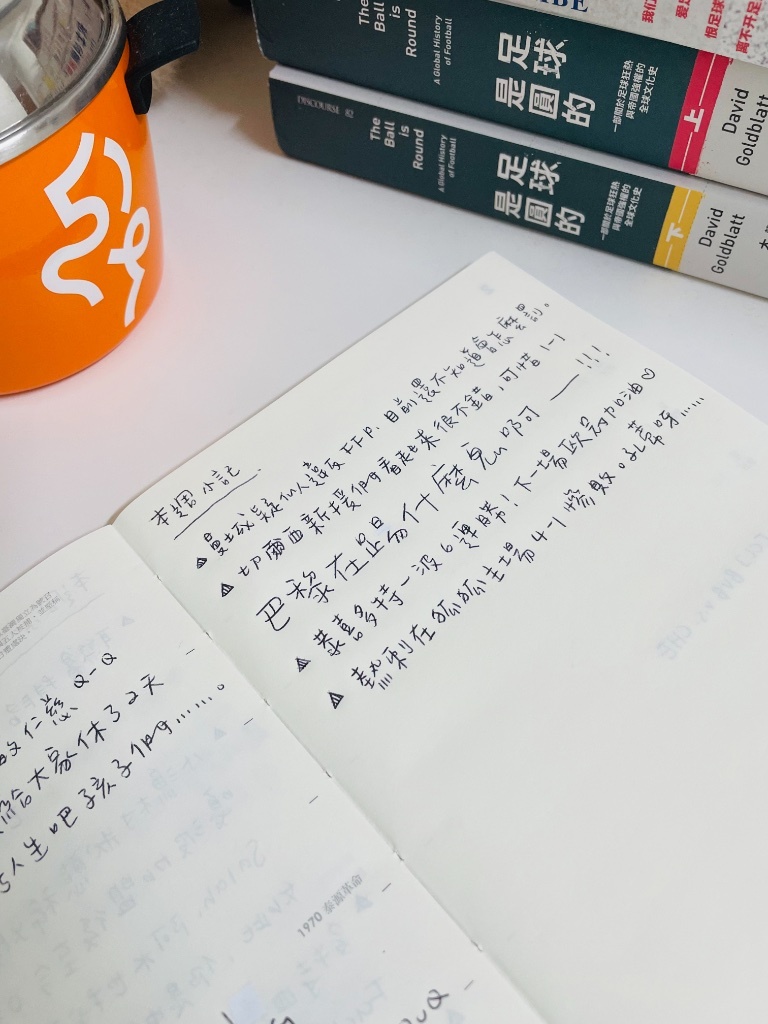 The Ball is Round
A Global History of Football
足球是圓的
一部關於足球狂熱與帝國強權的全球文化史
上
David Goldblatt
DISCOURSE
The Ball is Round
A Global History of Football
足球是圓的
一部關於足球狂熱與帝國強權的全球文化史
下
David Goldblatt
本週小記
▲曼城疑似人違反FFP,目前還不知道會怎麼罰。
▲切爾西新援們看起來很不錯,可惜1-1
巴黎在踢什麼鬼啊啊——!!!
▲泰喜多特一波6連勝!下一場歐冠加油♡
▲熱刺在狐狐主場4-1慘敗。孔蒂呀……
仁慈 Q-Q
給大家休了2天
人生吧孩子們……。
1970 泰源革命